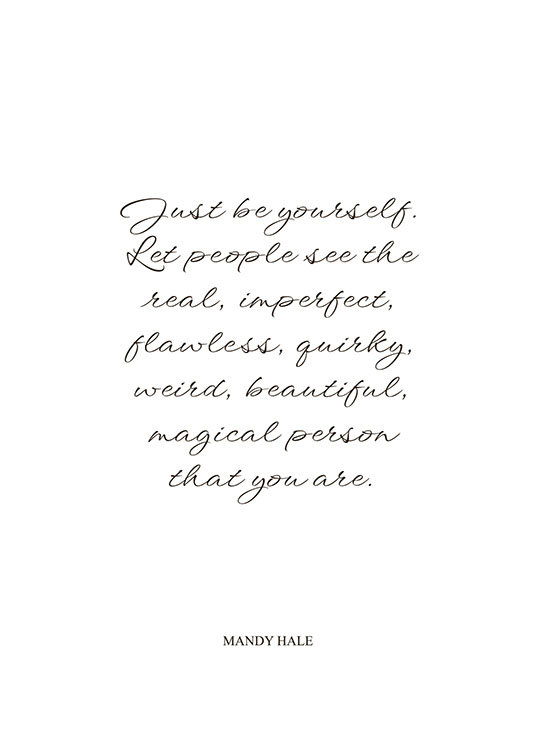 Just be yourself.
Let people see the
real, imperfect,
flawless, quirky,
weird, beautiful,
magical person
that you are.
MANDY HALE